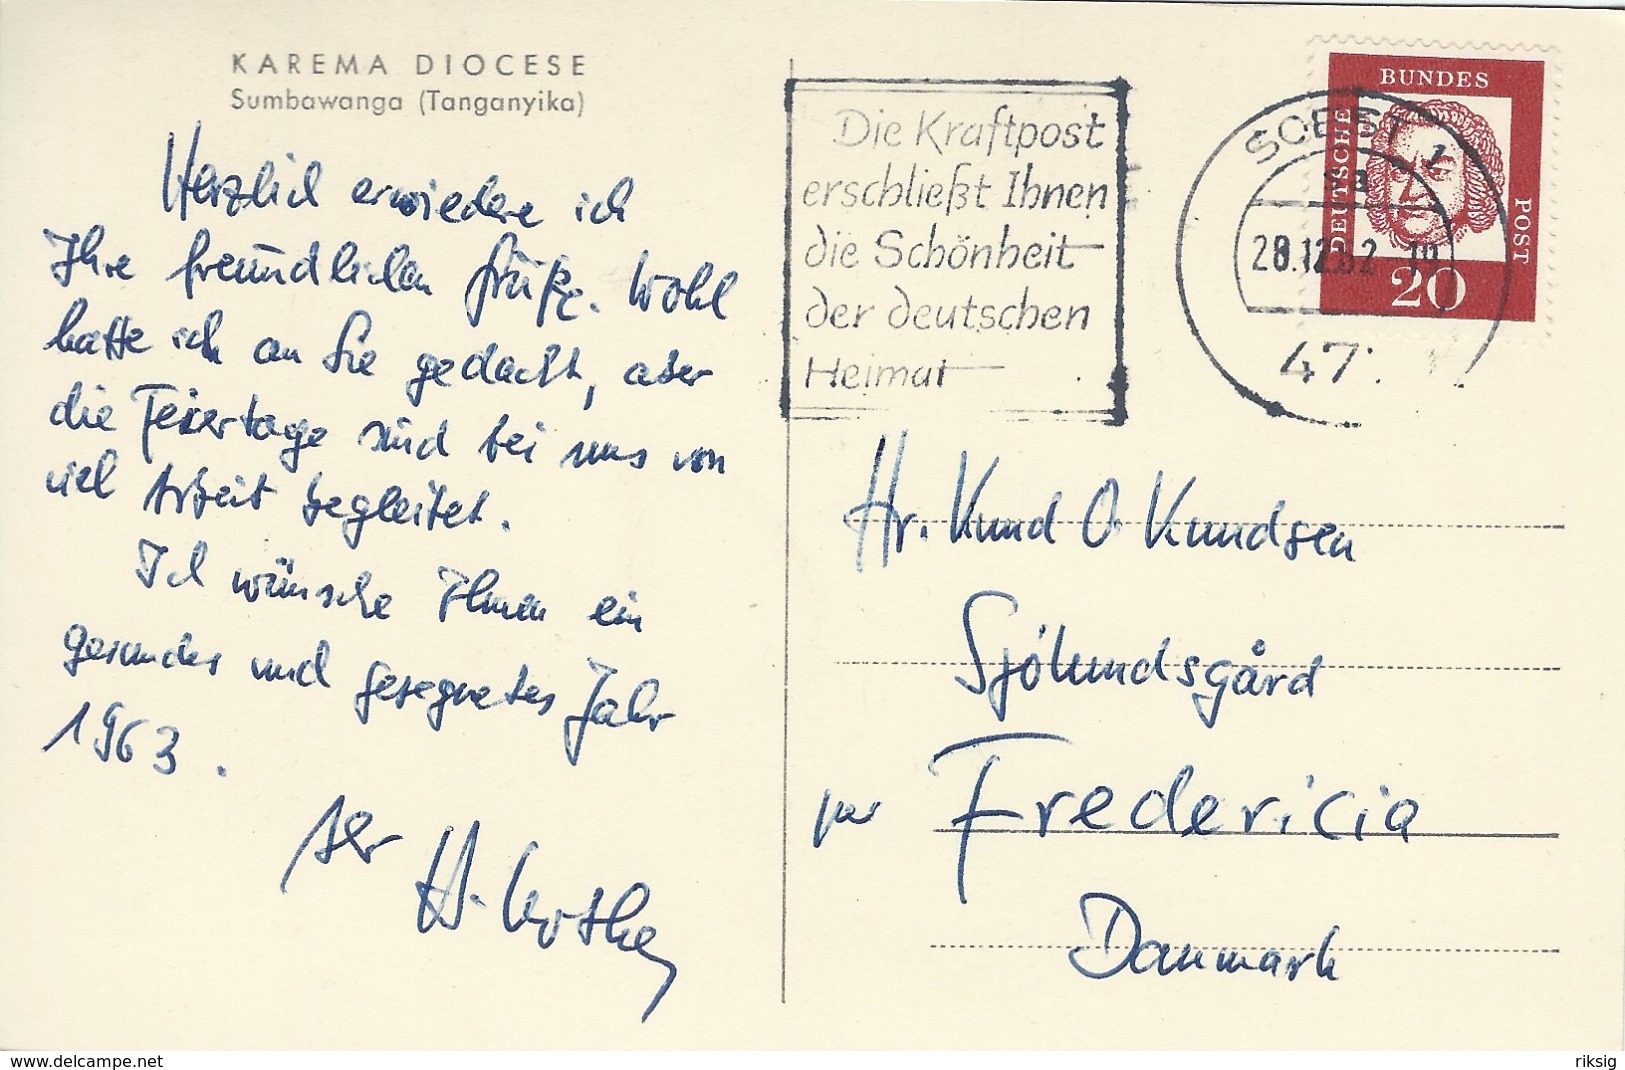 KAREMA DIOCESE
Sumbawanga (Tanganyika)
Herzlich erwiedere ich
Ihre freundlichen Grüße. Wohl
hatte ich an Sie gedacht, aber
die Feiertage sind bei uns von
viel Arbeit begleitet.
Ich wünsche Ihnen ein
gesundes und gesegnetes Jahr
1963.
Ihr
H.
Die Kraftpost
erschließt Ihnen
die Schönheit
der deutschen
Heimat
SOEST 1
28.12.62
47
DEUTSCHE
BUNDES
POST
20
Hr. Knud O. Knudsen
Sjölundsgård
per Fredericia
Danmark
www.delcampe.net
riksig